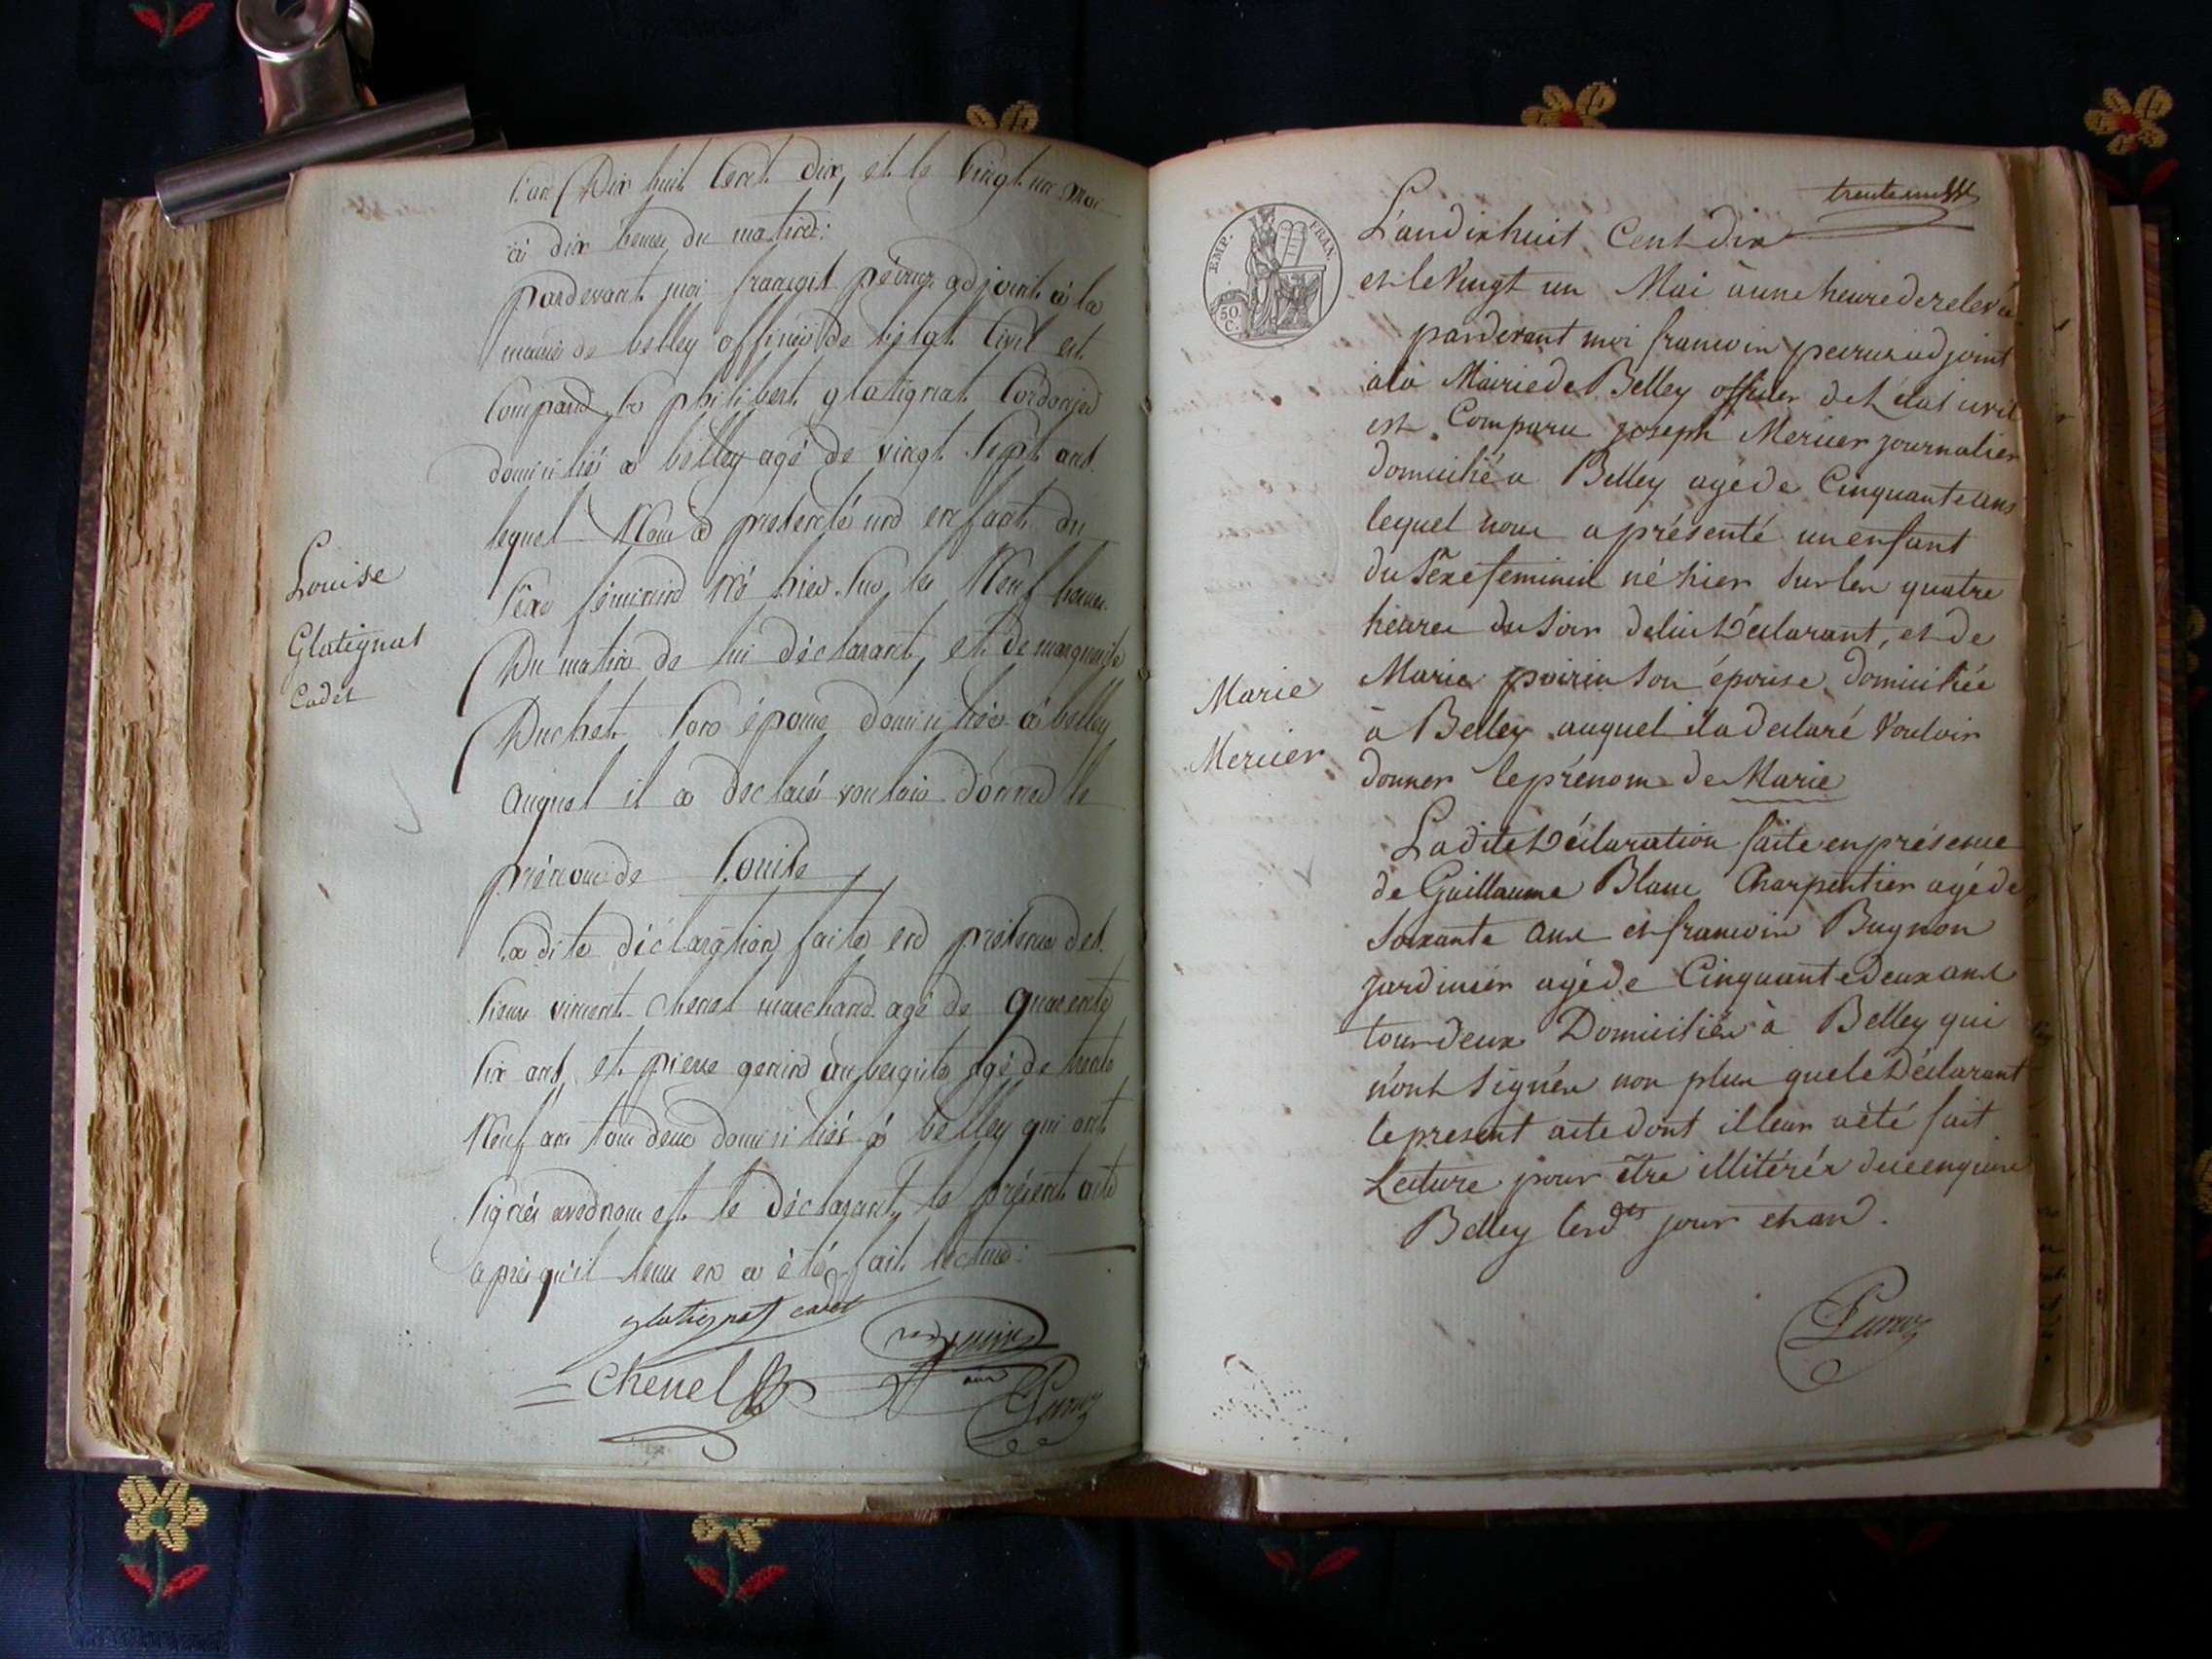 L'an Dix huit Cent Dix, et le Vingt un Mai
à dix heures du matin:
pardevant moi françois péirus adjoint à la
mairie de belley officier de l'état Civil est
Comparu le philibert glatignat Cordonier
domicilié a belley agé de vingt Sept ans
lequel Nous a presenté un enfant du
Sexe féminin Né hier Sur les Neuf heures
Du matin de lui déclarant, et de marguerite
Duchet Son épouse domiciliée à belley
auquel il a declaré vouloir donner le
prénom de Louise
La dite déclaration faite en présence des
Sieurs vincent Chenel marchand agé de quarente
Six ans et pierre genin aubergiste agé de trente
Neuf ans tous deux domiciliés à belley qui ont
Signés avec nous et le déclarant le présent acte
après qu'il leur en a été fait lecture:
Louise
Glatignat
Cadet
glatignat cadet
Chenel
trente un
EMP. FRAN.
50
C.
L'an dix huit Cent dix
et le Vingt un Mai à une heure de relevée
pardevant moi francois peirus adjoint
a la Mairie de Belley officier de L'état civil
est Comparu joseph Mercier journalier
domicilié a Belley agé de Cinquante ans
lequel nous a présenté un enfant
du Sexe feminin né hier Sur les quatre
heures du Soir de lui Déclarant, et de
Marie poirin Son épouse domiciliée
à Belley auquel il a declaré Vouloir
donner le prénom de Marie
La dite Déclaration faite en présence
de Guillaume Blanc Charpentier agé de
Soixante ans et francois Bugnon
jardinier agé de Cinquante deux ans
tous deux Domiciliés à Belley qui
n'ont Signés non plus que le Déclarant
le present acte dont il leur a été fait
Lecture pour être illitérés de ce enquis
Belley les dts jour et an.
Marie
Mercier